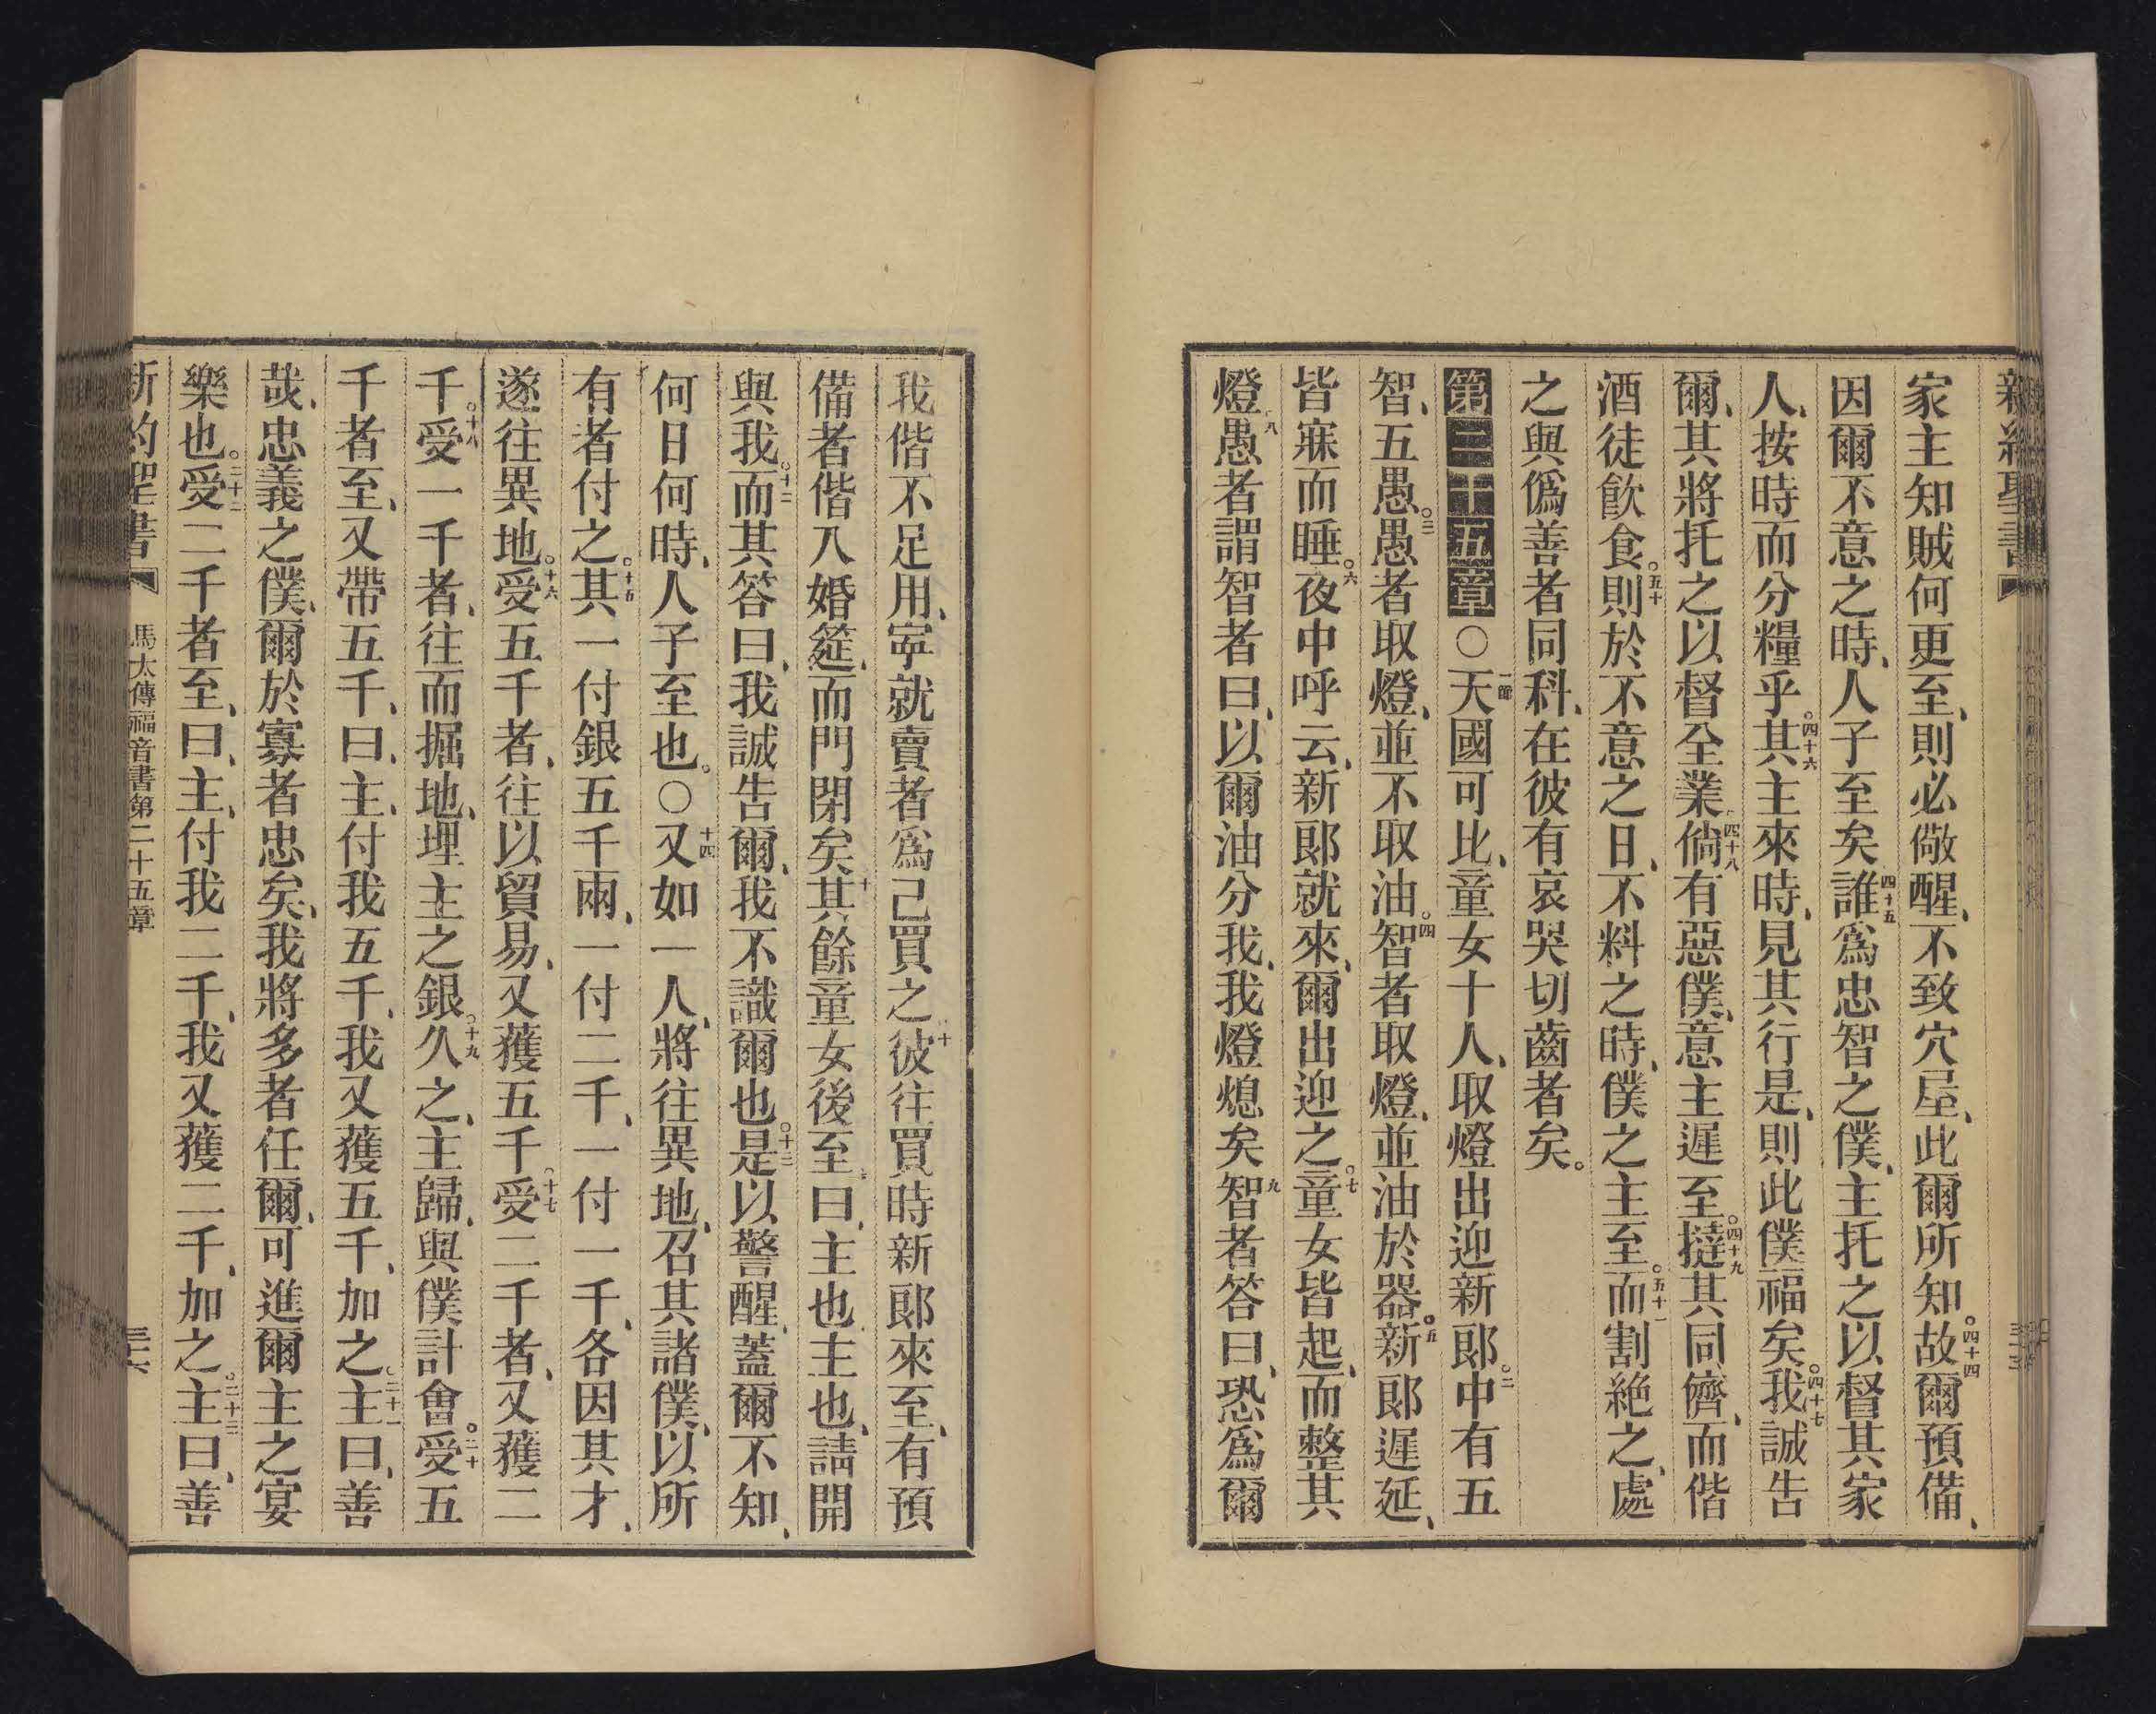 新約聖書
家主知賊何更至、則必儆醒、不致穴屋、此爾所知。四十四故爾預備、
因爾不意之時、人子至矣四十五誰爲忠智之僕、主托之以督其家
人、按時而分糧乎。四十六其主來時、見其行是、則此僕福矣。四十七我誠告
爾、其將托之以督全業四十八倘有惡僕、意主遲至。四十九撻其同儕、而偕
酒徒飲食。五十則於不意之日、不料之時、僕之主至。五十一而割絶之、處
之與僞善者同科、在彼有哀哭切齒者矣。
第二十五章〇一節天國可比、童女十人、取燈出迎新郎。二中有五
智、五愚。三愚者取燈、並不取油。四智者取燈、並油於器。五新郎遲延、
皆寐而睡。六夜中呼云、新郎就來、爾出迎之。七童女皆起、而整其
燈八愚者謂智者曰、以爾油分我、我燈熄矣九智者答曰、恐爲爾
我偕不足用、寧就賣者爲己買之十彼往買時新郎來至、有預
備者偕入婚筵、而門閉矣十一其餘童女後至、曰、主也、主也、請開
與我。十二而其答曰、我誠告爾、我不識爾也。十三是以警醒、蓋爾不知、
何日何時、人子至也。〇十四又如一人、將往異地、召其諸僕、以所
有者付之。十五其一付銀五千兩、一付二千、一付一千、各因其才、
遂往異地。十六受五千者、往以貿易、又獲五千。十七受二千者、又獲二
千。十八受一千者、往而掘地、埋主之銀。十九久之、主歸、與僕計會。二十受五
千者至、又帶五千、曰、主、付我五千、我又獲五千、加之。二十一主曰、善
哉、忠義之僕、爾於寡者忠矣、我將多者任爾、可進爾主之宴
樂也。二十二受二千者至、曰、主、付我二千、我又獲二千、加之。二十三主曰、善
新約聖書 馬太傳福音書第二十五章 三六